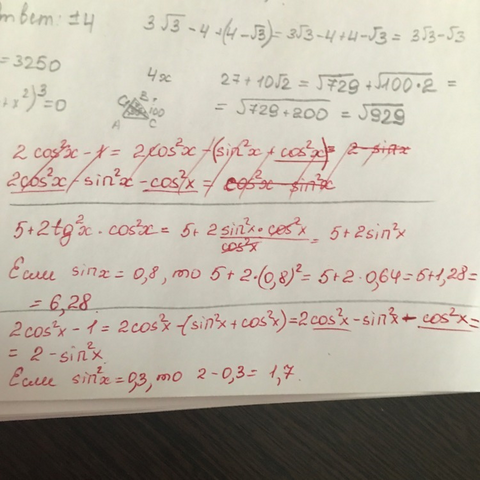 ответ: ±4
3√3 - 4 + (4 - √3) = 3√3 - 4 + 4 - √3 = 3√3 - √3
= 3250
4x
27 + 10√2 = √729 + √100·2 =
+ x²)³ = 0
= √729 + 200 = √929
A C
2 cos²x - 1 = 2cos²x - (sin²x + cos²x) = 2 - sinx
2cos²x - sin²x - cos²x = cos²x - sin²x
5 + 2tg²x · cos²x = 5 + 2 sin²x · cos²x / cos²x = 5 + 2sin²x
Если sinx = 0,8, то 5 + 2·(0,8)² = 5 + 2·0,64 = 5 + 1,28 =
= 6,28
2cos²x - 1 = 2cos²x - (sin²x + cos²x) = 2cos²x - sin²x - cos²x =
= 2 - sin²x
Если sin²x = 0,3, то 2 - 0,3 = 1,7.